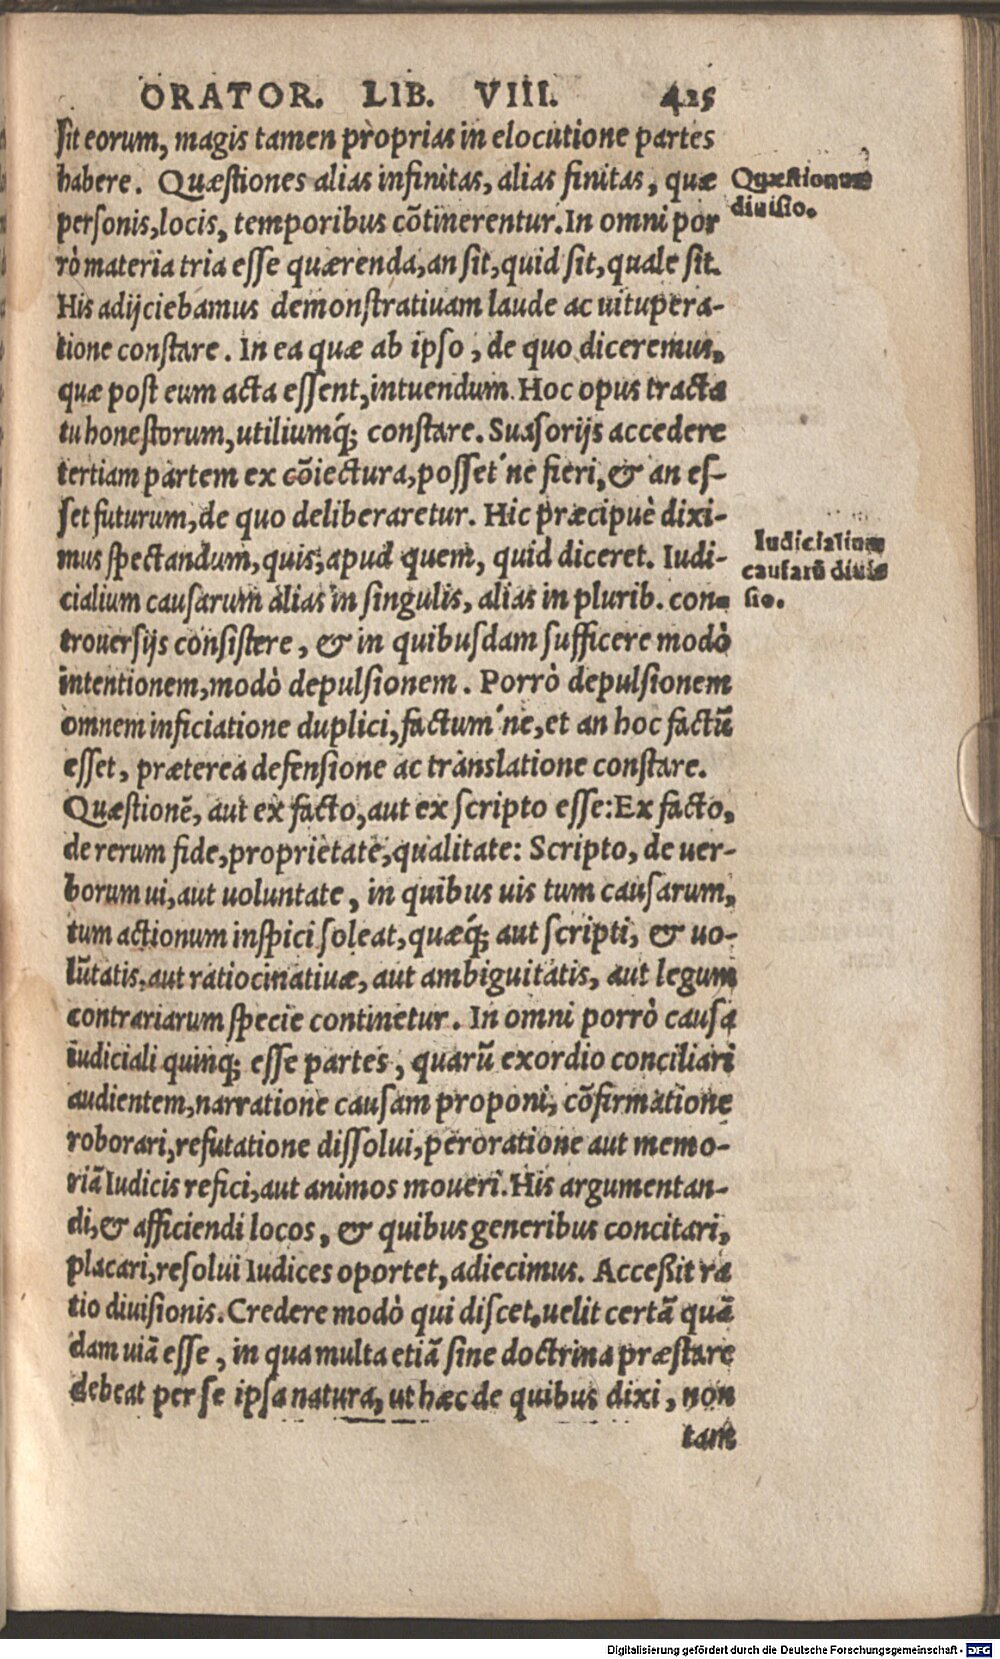 ORATOR. LIB. VIII. 425
ſit eorum, magis tamen proprias in elocutione partes
habere. Quæſtiones alias infinitas, alias finitas, quæ
perſonis, locis, temporibus cõtinerentur. In omni por
rò materia tria eſſe quærenda, an ſit, quid ſit, quale ſit.
His adijciebamus demonſtratiuam laude ac uitupera-
tione conſtare. In ea quæ ab ipſo, de quo diceremus,
quæ poſt eum acta eſſent, intuendum. Hoc opus tracta
tu honeſtorum, utiliumq́; conſtare. Suaſorijs accedere
tertiam partem ex cõiectura, poſſet'ne fieri, & an eſ-
ſet futurum, de quo deliberaretur. Hic præcipuè dixi-
mus ſpectandum, quis, apud quem, quid diceret. Iudi-
cialium cauſarum alias in ſingulis, alias in plurib. con-
trouerſijs conſiſtere, & in quibuſdam ſufficere modò
intentionem, modò depulſionem. Porrò depulſionem
omnem inficiatione duplici, factum'ne, et an hoc factũ
eſſet, præterea defenſione ac translatione conſtare.
Quæſtionẽ, aut ex facto, aut ex ſcripto eſſe: Ex facto,
de rerum fide, proprietate, qualitate: Scripto, de uer-
borum ui, aut uoluntate, in quibus uis tum cauſarum,
tum actionum inſpici ſoleat, quæq́; aut ſcripti, & uo-
lũtatis, aut ratiocinatiuæ, aut ambiguitatis, aut legum
contrariarum ſpecie continetur. In omni porrò cauſa
iudiciali quinq; eſſe partes, quarũ exordio conciliari
audientem, narratione cauſam proponi, cõfirmatione
roborari, refutatione diſſolui, peroratione aut memo-
riã Iudicis refici, aut animos moueri. His argumentan-
di, & afficiendi locos, & quibus generibus concitari,
placari, reſolui Iudices oportet, adiecimus. Acceßit ra
tio diuiſionis. Credere modò qui diſcet, uelit certã quã
dam uiã eſſe, in qua multa etiã ſine doctrina præſtare
debeat per ſe ipſa natura, ut hæc de quibus dixi, non
tam
Quæſtionum
diuiſio.
Iudicialium
cauſarũ diui-
ſio.
Digitalisierung gefördert durch die Deutsche Forschungsgemeinschaft - DFG